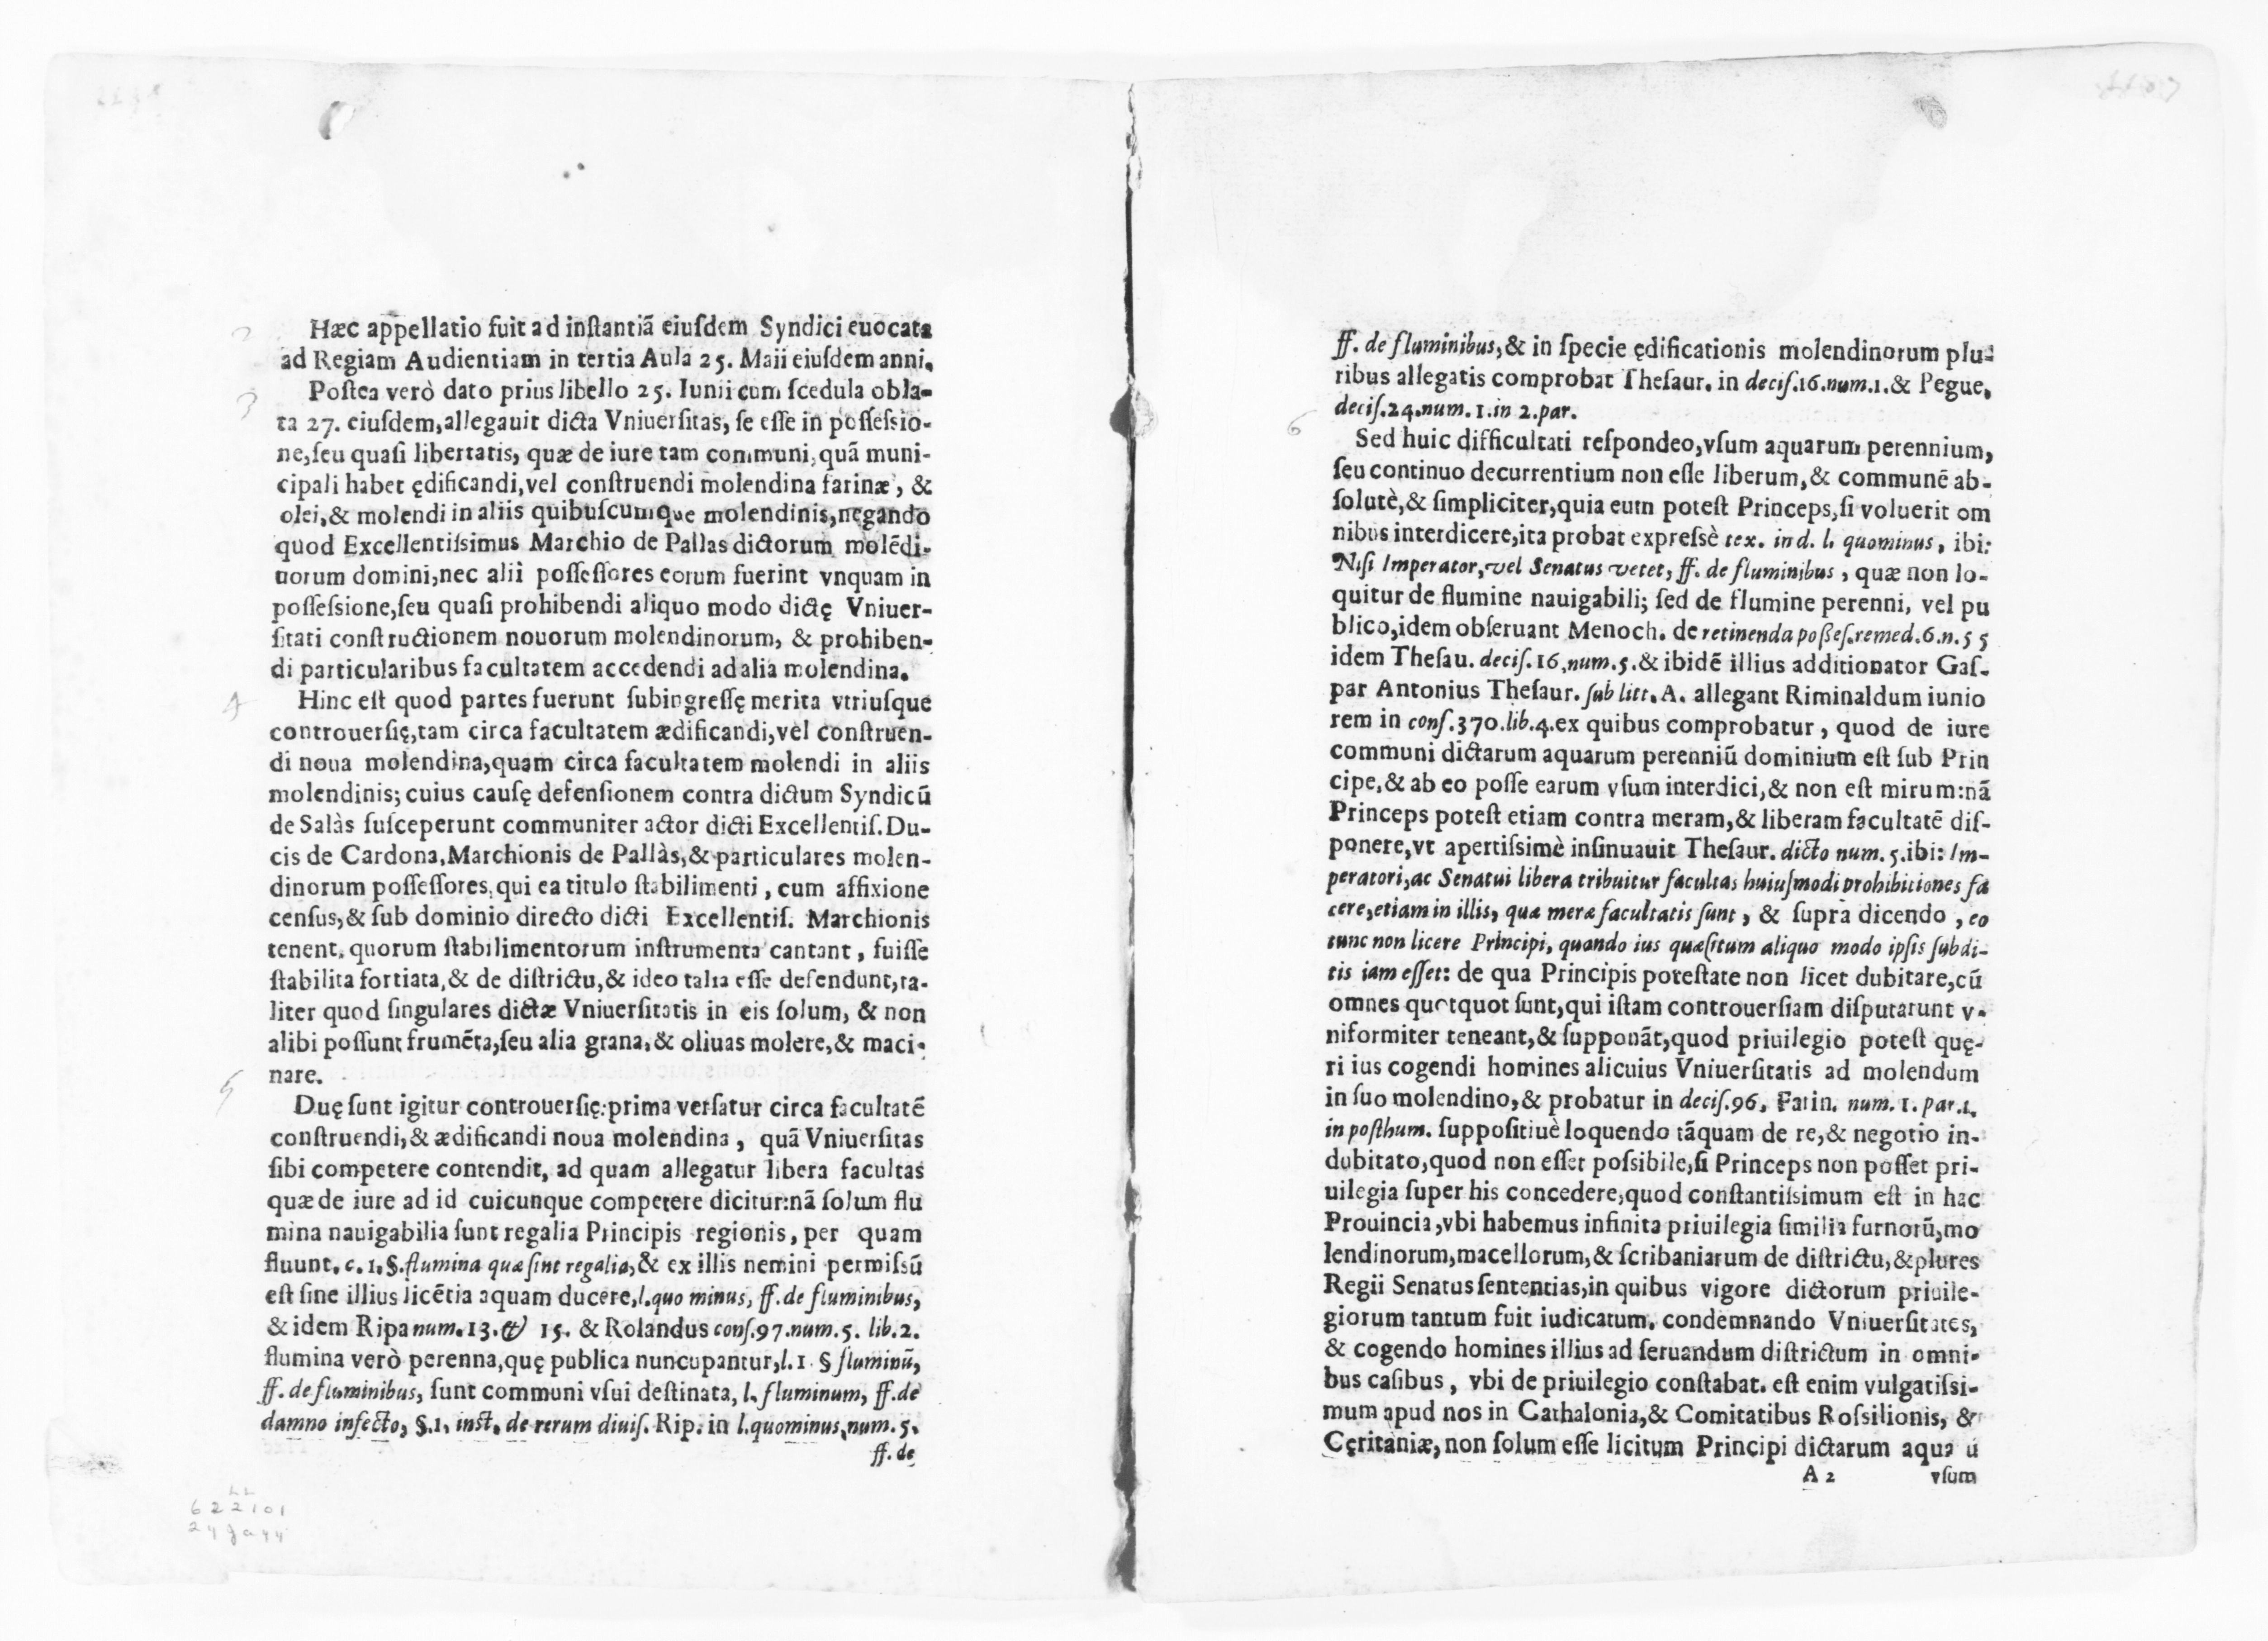 Hæc appellatio fuit ad inſtantiã eiuſdem Syndici euocata
ad Regiam Audientiam in tertia Aula 25. Maii eiuſdem anni.
Poſtea verò dato prius libello 25. Iunii cum ſcedula obla-
ta 27. eiuſdem, allegauit dicta Vniuerſitas, ſe eſſe in poſſeſsio-
ne, ſeu quaſi libertatis, quæ de iure tam communi, quã muni-
cipali habet ędificandi, vel conſtruendi molendina farinæ, &
olei, & molendi in aliis quibuſcumque molendinis, negando
quod Excellentiſsimus Marchio de Pallas dictorum molẽdi-
norum domini, nec alii poſſeſſores eorum fuerint vnquam in
poſſeſsione, ſeu quaſi prohibendi aliquo modo dictę Vniuer-
ſitati conſtructionem nouorum molendinorum, & prohiben-
di particularibus facultatem accedendi ad alia molendina.
Hinc eſt quod partes fuerunt ſubingreſſę merita vtriuſque
controuerſię, tam circa facultatem ædificandi, vel conſtruen-
di noua molendina, quam circa facultatem molendi in aliis
molendinis; cuius cauſę defenſionem contra dictum Syndicũ
de Salàs ſuſceperunt communiter actor dicti Excellentiſ. Du-
cis de Cardona, Marchionis de Pallàs, & particulares molen-
dinorum poſſeſſores, qui ea titulo ſtabilimenti, cum affixione
cenſus, & ſub dominio directo dicti Excellentiſ. Marchionis
tenent, quorum ſtabilimentorum inſtrumenta cantant, fuiſſe
ſtabilita fortiata, & de diſtrictu, & ideo talia eſſe defendunt, ta-
liter quod ſingulares dictæ Vniuerſitatis in eis ſolum, & non
alibi poſſunt frumẽta, ſeu alia grana, & oliuas molere, & maci-
nare.
Duę ſunt igitur controuerſię: prima verſatur circa facultatẽ
conſtruendi, & ædificandi noua molendina, quã Vniuerſitas
ſibi competere contendit, ad quam allegatur libera facultas
quæ de iure ad id cuicunque competere dicitur: nã ſolum flu
mina nauigabilia ſunt regalia Principis regionis, per quam
fluunt. c. 1. §. flumina quæ ſint regalia, & ex illis nemini permiſsũ
eſt ſine illius licẽtia aquam ducere, l. quo minus, ff. de fluminibus,
& idem Ripa num. 13. & 15. & Rolandus conſ. 97. num. 5. lib. 2.
flumina verò perenna, quę publica nuncupantur, l. 1 § fluminũ,
ff. de fluminibus, ſunt communi vſui deſtinata, l. fluminum, ff. de
damno infecto, §. 1. inſt. de rerum diuiſ. Rip. in l. quominus, num. 5.
ff. de
ff. de fluminibus, & in ſpecie ędificationis molendinorum plu-
ribus allegatis comprobat Theſaur. in deciſ. 16. num. 1. & Pegue,
deciſ. 24. num. 1. in 2. par.
Sed huic difficultati reſpondeo, vſum aquarum perennium,
ſeu continuo decurrentium non eſſe liberum, & communẽ ab-
ſolutè, & ſimpliciter, quia eum poteſt Princeps, ſi voluerit om
nibus interdicere, ita probat expreſsè tex. in d. l. quominus, ibi:
Niſi Imperator, vel Senatus vetet, ff. de fluminibus, quæ non lo-
quitur de flumine nauigabili; ſed de flumine perenni, vel pu
blico, idem obſeruant Menoch. de retinenda poßeſ. remed. 6. n. 55
idem Theſau. deciſ. 16. num. 5. & ibidẽ illius additionator Gaſ-
par Antonius Theſaur. ſub litt. A. allegant Riminaldum iunio
rem in conſ. 370. lib. 4. ex quibus comprobatur, quod de iure
communi dictarum aquarum perenniũ dominium eſt ſub Prin
cipe, & ab eo poſſe earum vſum interdici, & non eſt mirum: nã
Princeps poteſt etiam contra meram, & liberam facultatẽ diſ-
ponere, vt apertiſsimè inſinuauit Theſaur. dicto num. 5. ibi: Im-
peratori, ac Senatui libera tribuitur facultas huiuſmodi prohibitiones fa
cere, etiam in illis, quæ meræ facultatis ſunt, & ſuprà dicendo, eo
tunc non licere Principi, quando ius quæſitum aliquo modo ipſis ſubdi-
tis iam eſſet: de qua Principis poteſtate non licet dubitare, cũ
omnes quotquot ſunt, qui iſtam controuerſiam diſputarunt v-
niformiter teneant, & ſupponãt, quod priuilegio poteſt quę-
ri ius cogendi homines alicuius Vniuerſitatis ad molendum
in ſuo molendino, & probatur in deciſ. 96. Farin. num. 1. par. 1.
in poſthum. ſuppoſitiuè loquendo tãquam de re, & negotio in-
dubitato, quod non eſſet poſsibile, ſi Princeps non poſſet pri-
uilegia ſuper his concedere, quod conſtantiſsimum eſt in hac
Prouincia, vbi habemus infinita priuilegia ſimilia furnorũ, mo
lendinorum, macellorum, & ſcribaniarum de diſtrictu, & plures
Regii Senatus ſententias, in quibus vigore dictorum priuile-
giorum tantum fuit iudicatum, condemnando Vniuerſitates,
& cogendo homines illius ad ſeruandum diſtrictum in omni-
bus caſibus, vbi de priuilegio conſtabat. eſt enim vulgatiſsi-
mum apud nos in Cathalonia, & Comitatibus Roſsilionis, &
Cęritaniæ, non ſolum eſſe licitum Principi dictarum aqua ũ
A 2 vſum